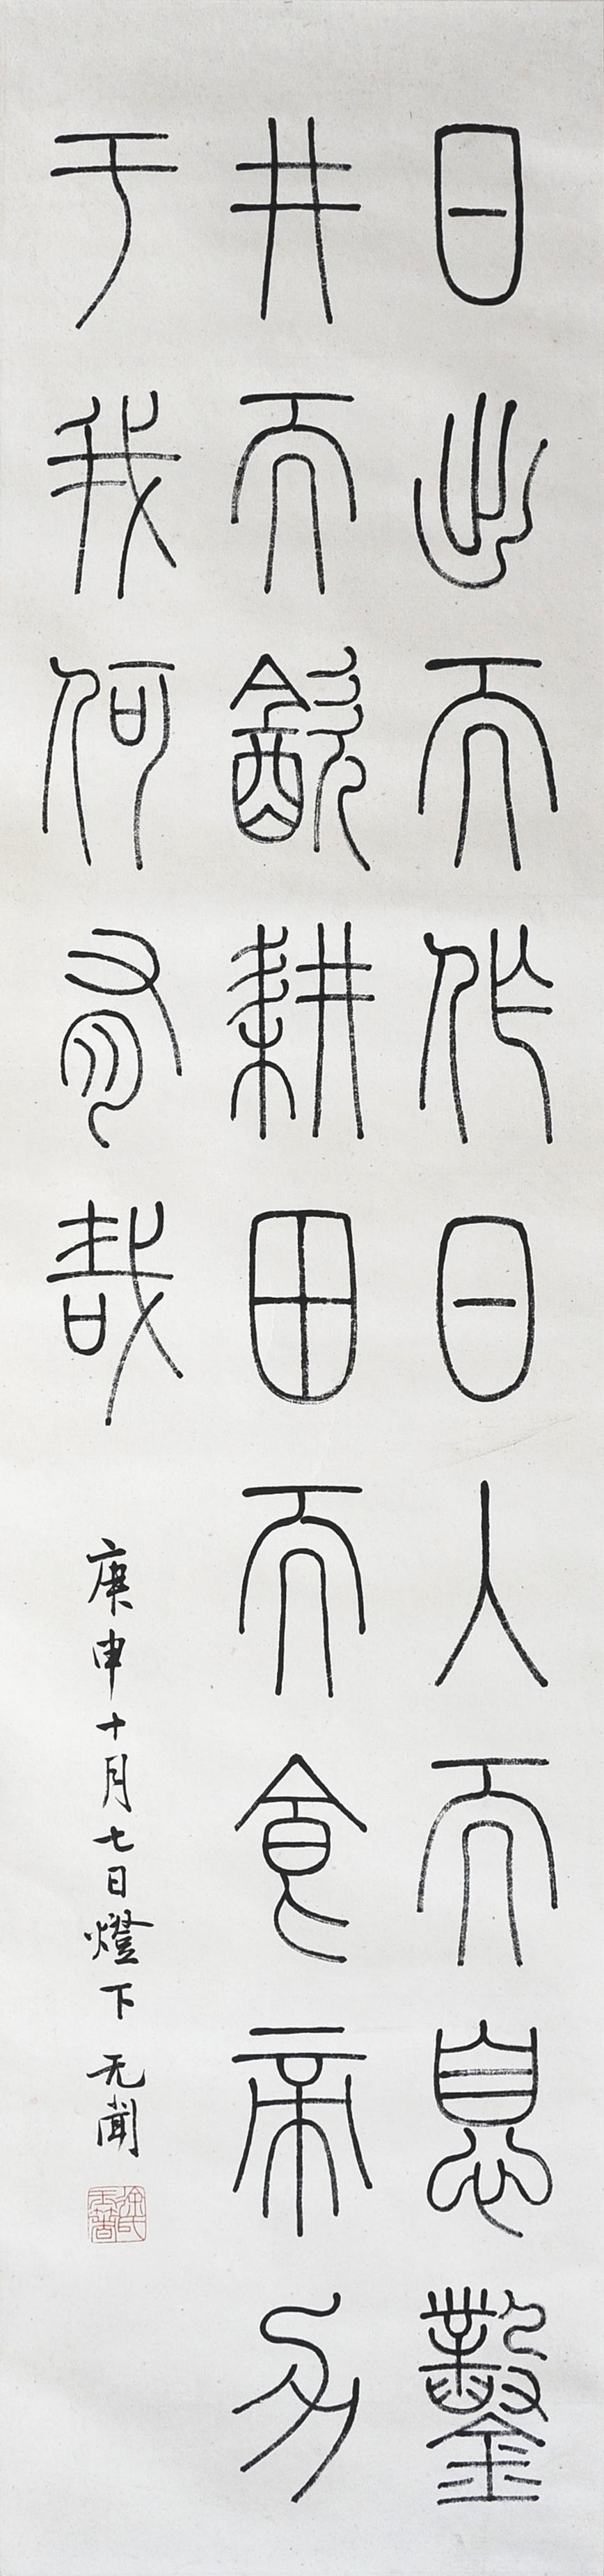 日出而作日入而息鑿
井而㱃耕田而食帝力
于我何有哉
庚申十月七日燈下 无聞
徐氏无聞